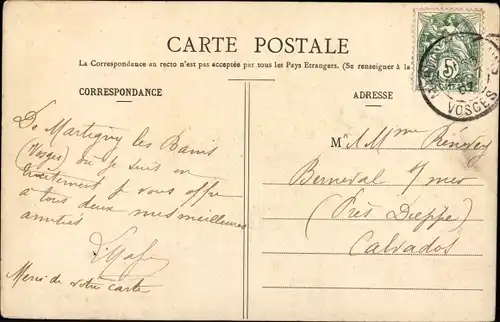 CARTE POSTALE
La Correspondance au recto n'est pas acceptée par tous les Pays Etrangers. (Se renseigner à la
CORRESPONDANCE
ADRESSE
5
VOSGES
De Martigny les Bains
(Vosges) où je suis en
traitement je vous offre
à tous deux mes meilleures
amitiés
Merci de votre carte
M. & Mme
Berneval s/ mer
(Près Dieppe)
Calvados